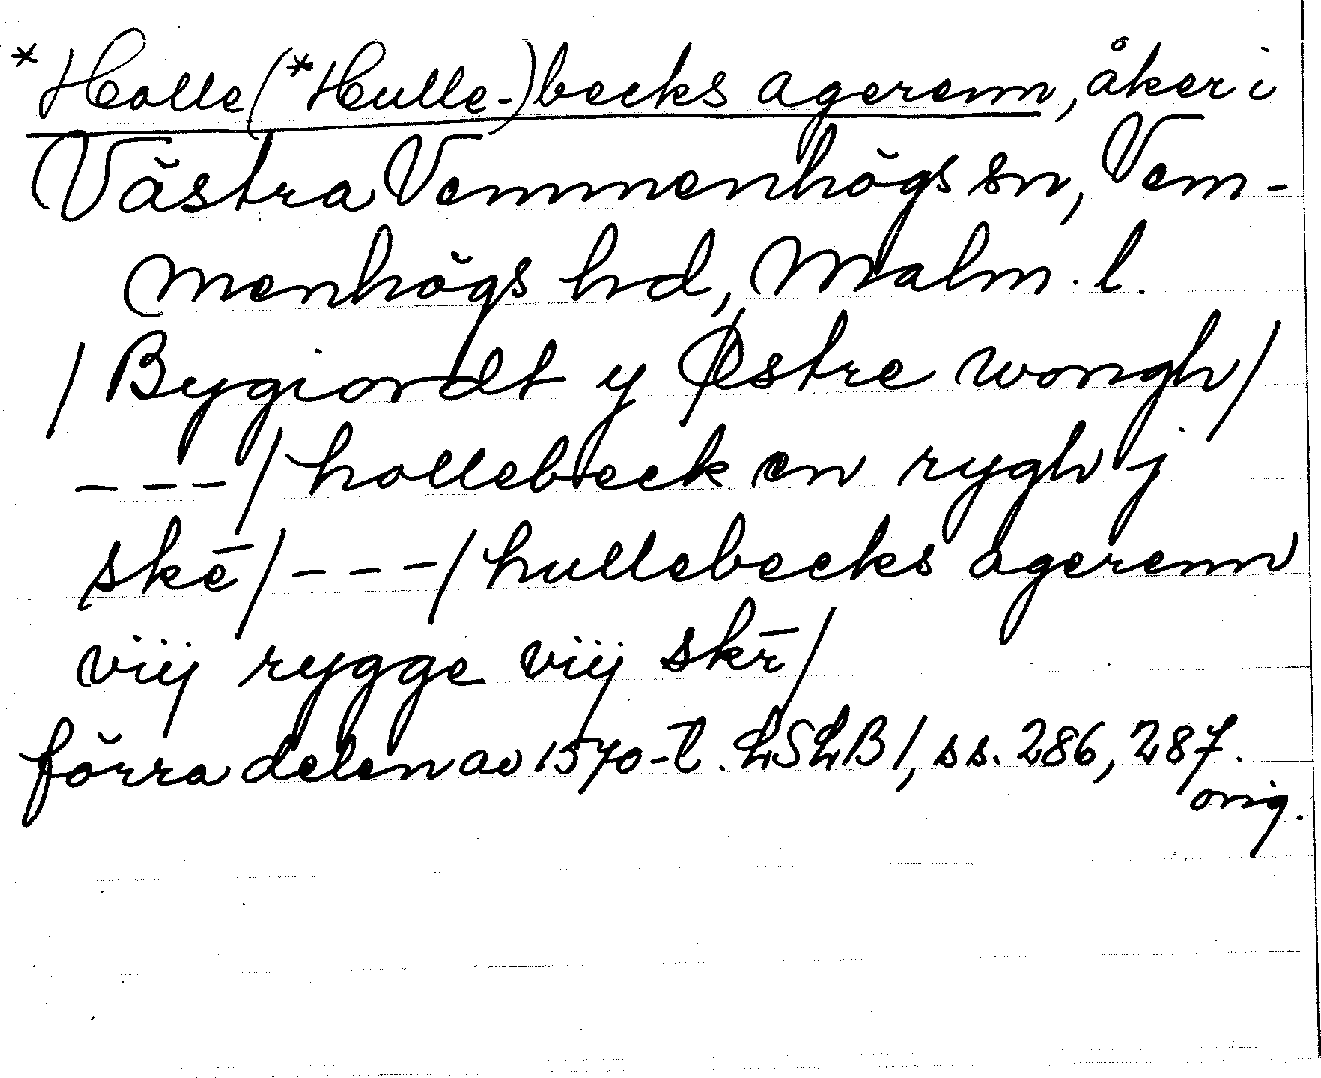 *Holle(*Hulle-)becks agerenn, åker i
Västra Vemmenhögs sn, Vem-
menhögs hd, Malm. l.
/ Bygiordt y Østre wongh /
--- / hollebeck en rygh j
skē / --- / hullebecks agerenn
vīj rygge vīj skr̄ /
förra delen av 1570-t. LSLB 1, ss. 286, 287.
orig.